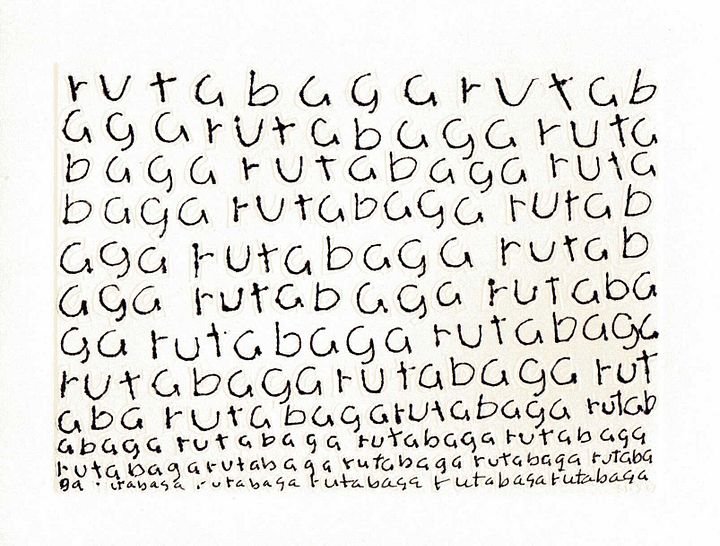 rutabagarutab
aga rutabaga ruta
baga rutabaga ruta
baga rutabaga rutab
aga rutabaga rutab
aga rutab aga rutaba
ga rutabaga rutabaga
rutabaga rutabaga rut
aba rutabagarutabaga rutab
abaga rutabaga rutabaga rutabaga
rutabagarutabaga rutabaga rutabaga rutaba
ga rutabaga rutabaga rutabaga rutabagarutabaga